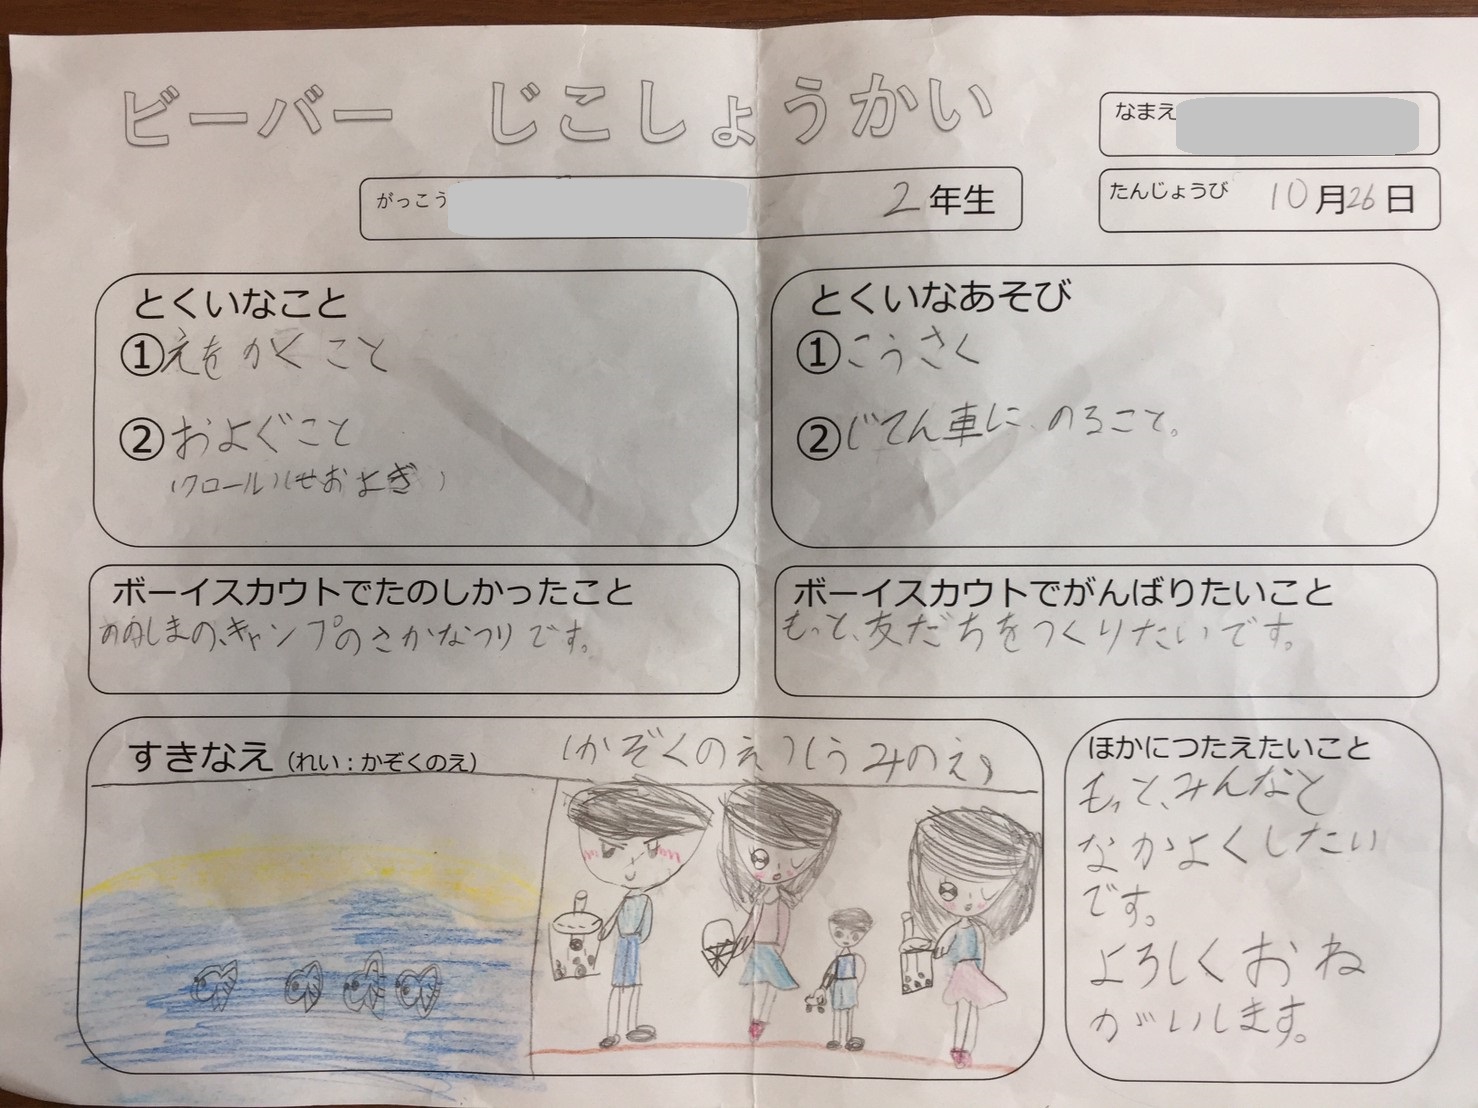 ビーバー　じこしょうかい
なまえ
がっこう 2年生
たんじょうび 10月26日
とくいなこと
①えをかくこと
②およぐこと
(クロール)(せおよぎ)
とくいなあそび
①こうさく
②じてん車に、のること。
ボーイスカウトでたのしかったこと
キャンプのさかなつりです。
ボーイスカウトでがんばりたいこと
もっと、友だちをつくりたいです。
すきなえ（れい：かぞくのえ） (かぞくのえ)(うみのえ)
ほかにつたえたいこと
もっと、みんなと
なかよくしたい
です。
よろしくおね
がいします。